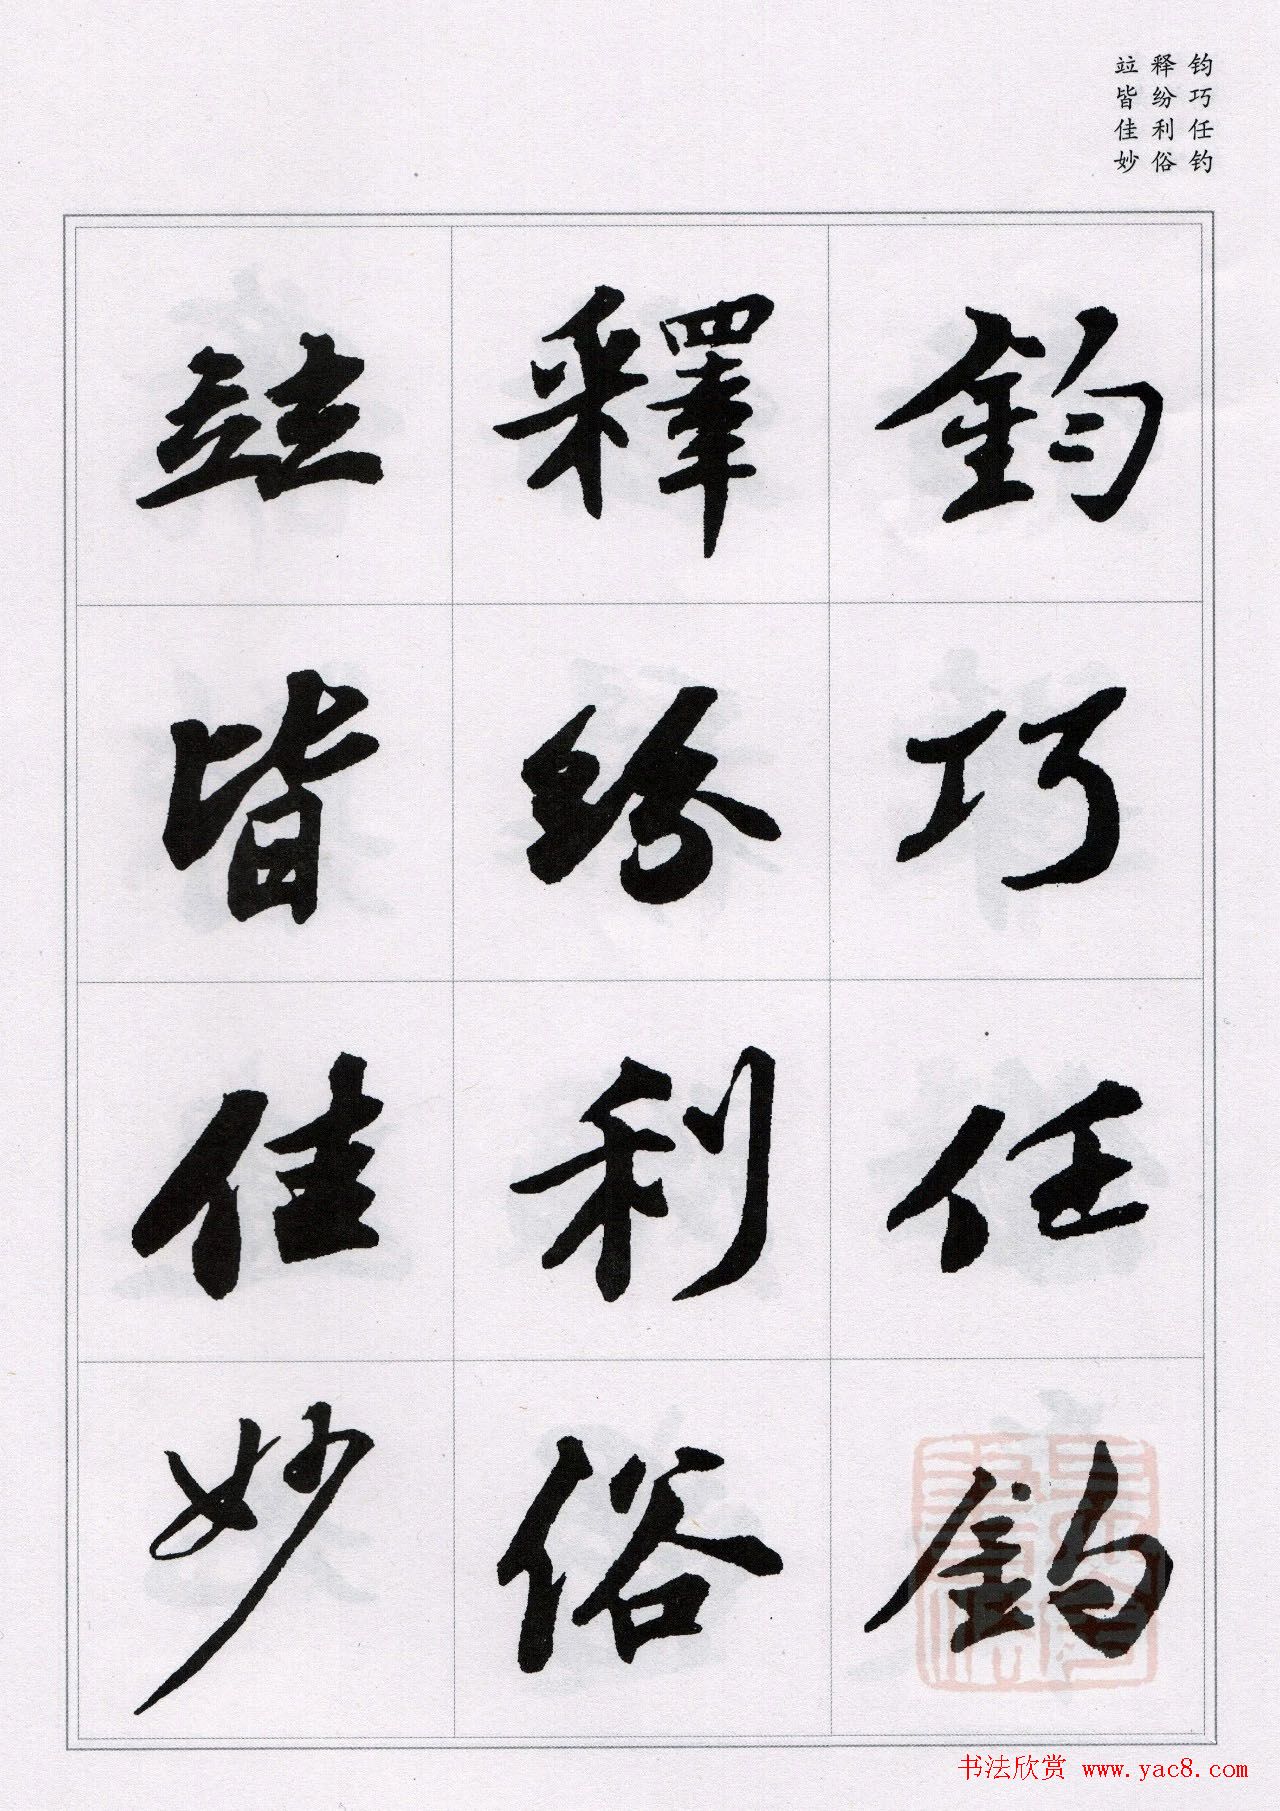 钧巧任钓
释纷利俗
竝皆佳妙
鈞巧任釣
釋紛利俗
竝皆佳妙
书法欣赏 www.yac8.com